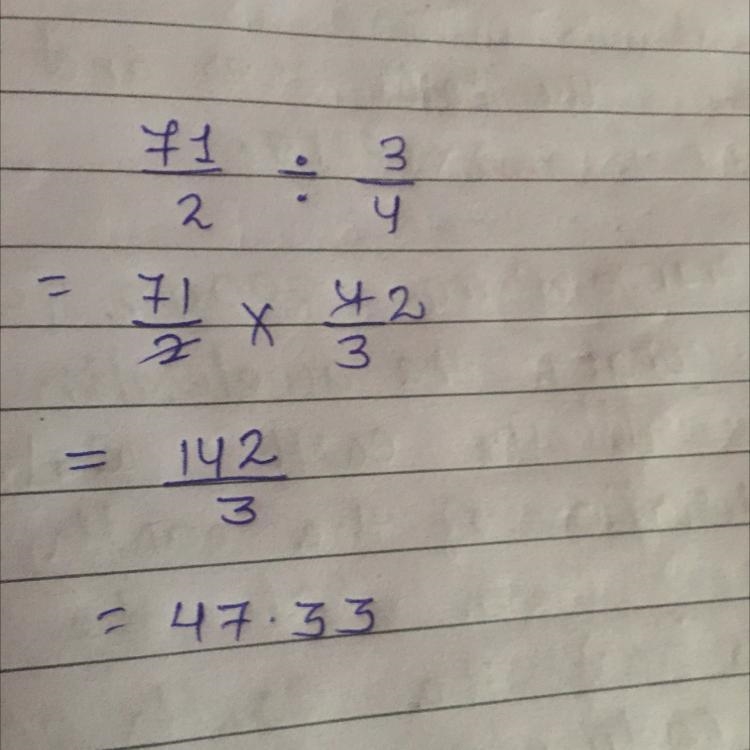 71/2 ÷ 3/4
= 71/2 × 4 2/3
= 142/3
= 47.33